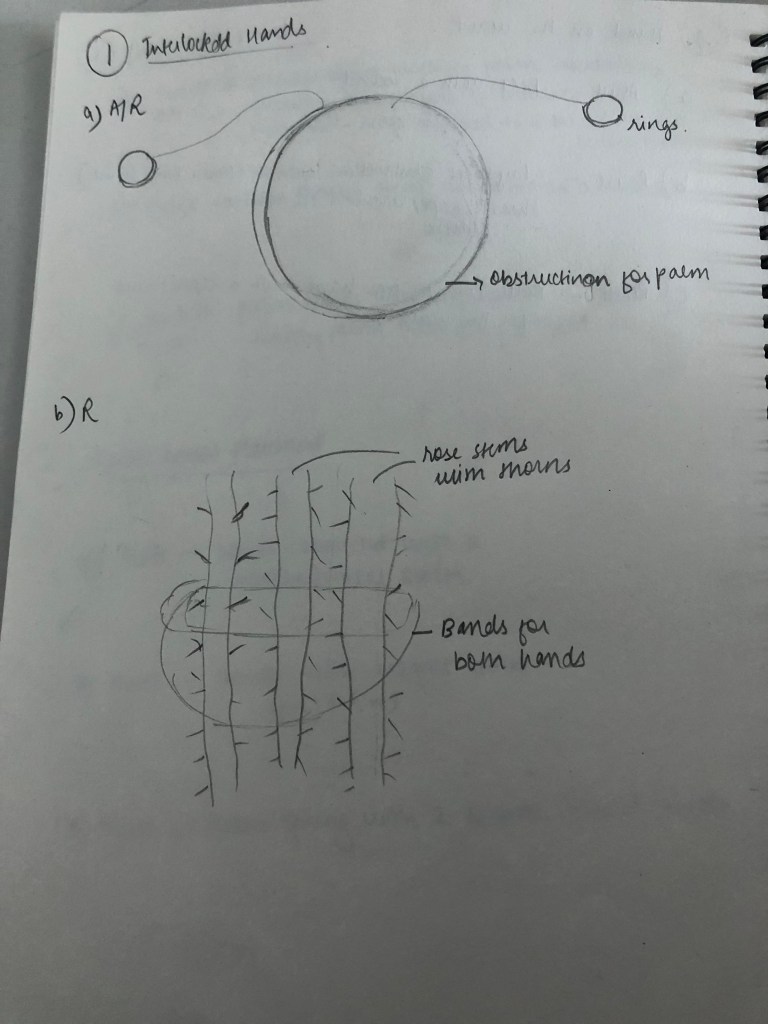 1 Interlockedd Hands
a) A/R
rings.
→ obstructingn for palm
b) R
rose stems
with thorns
Bands for
both hands